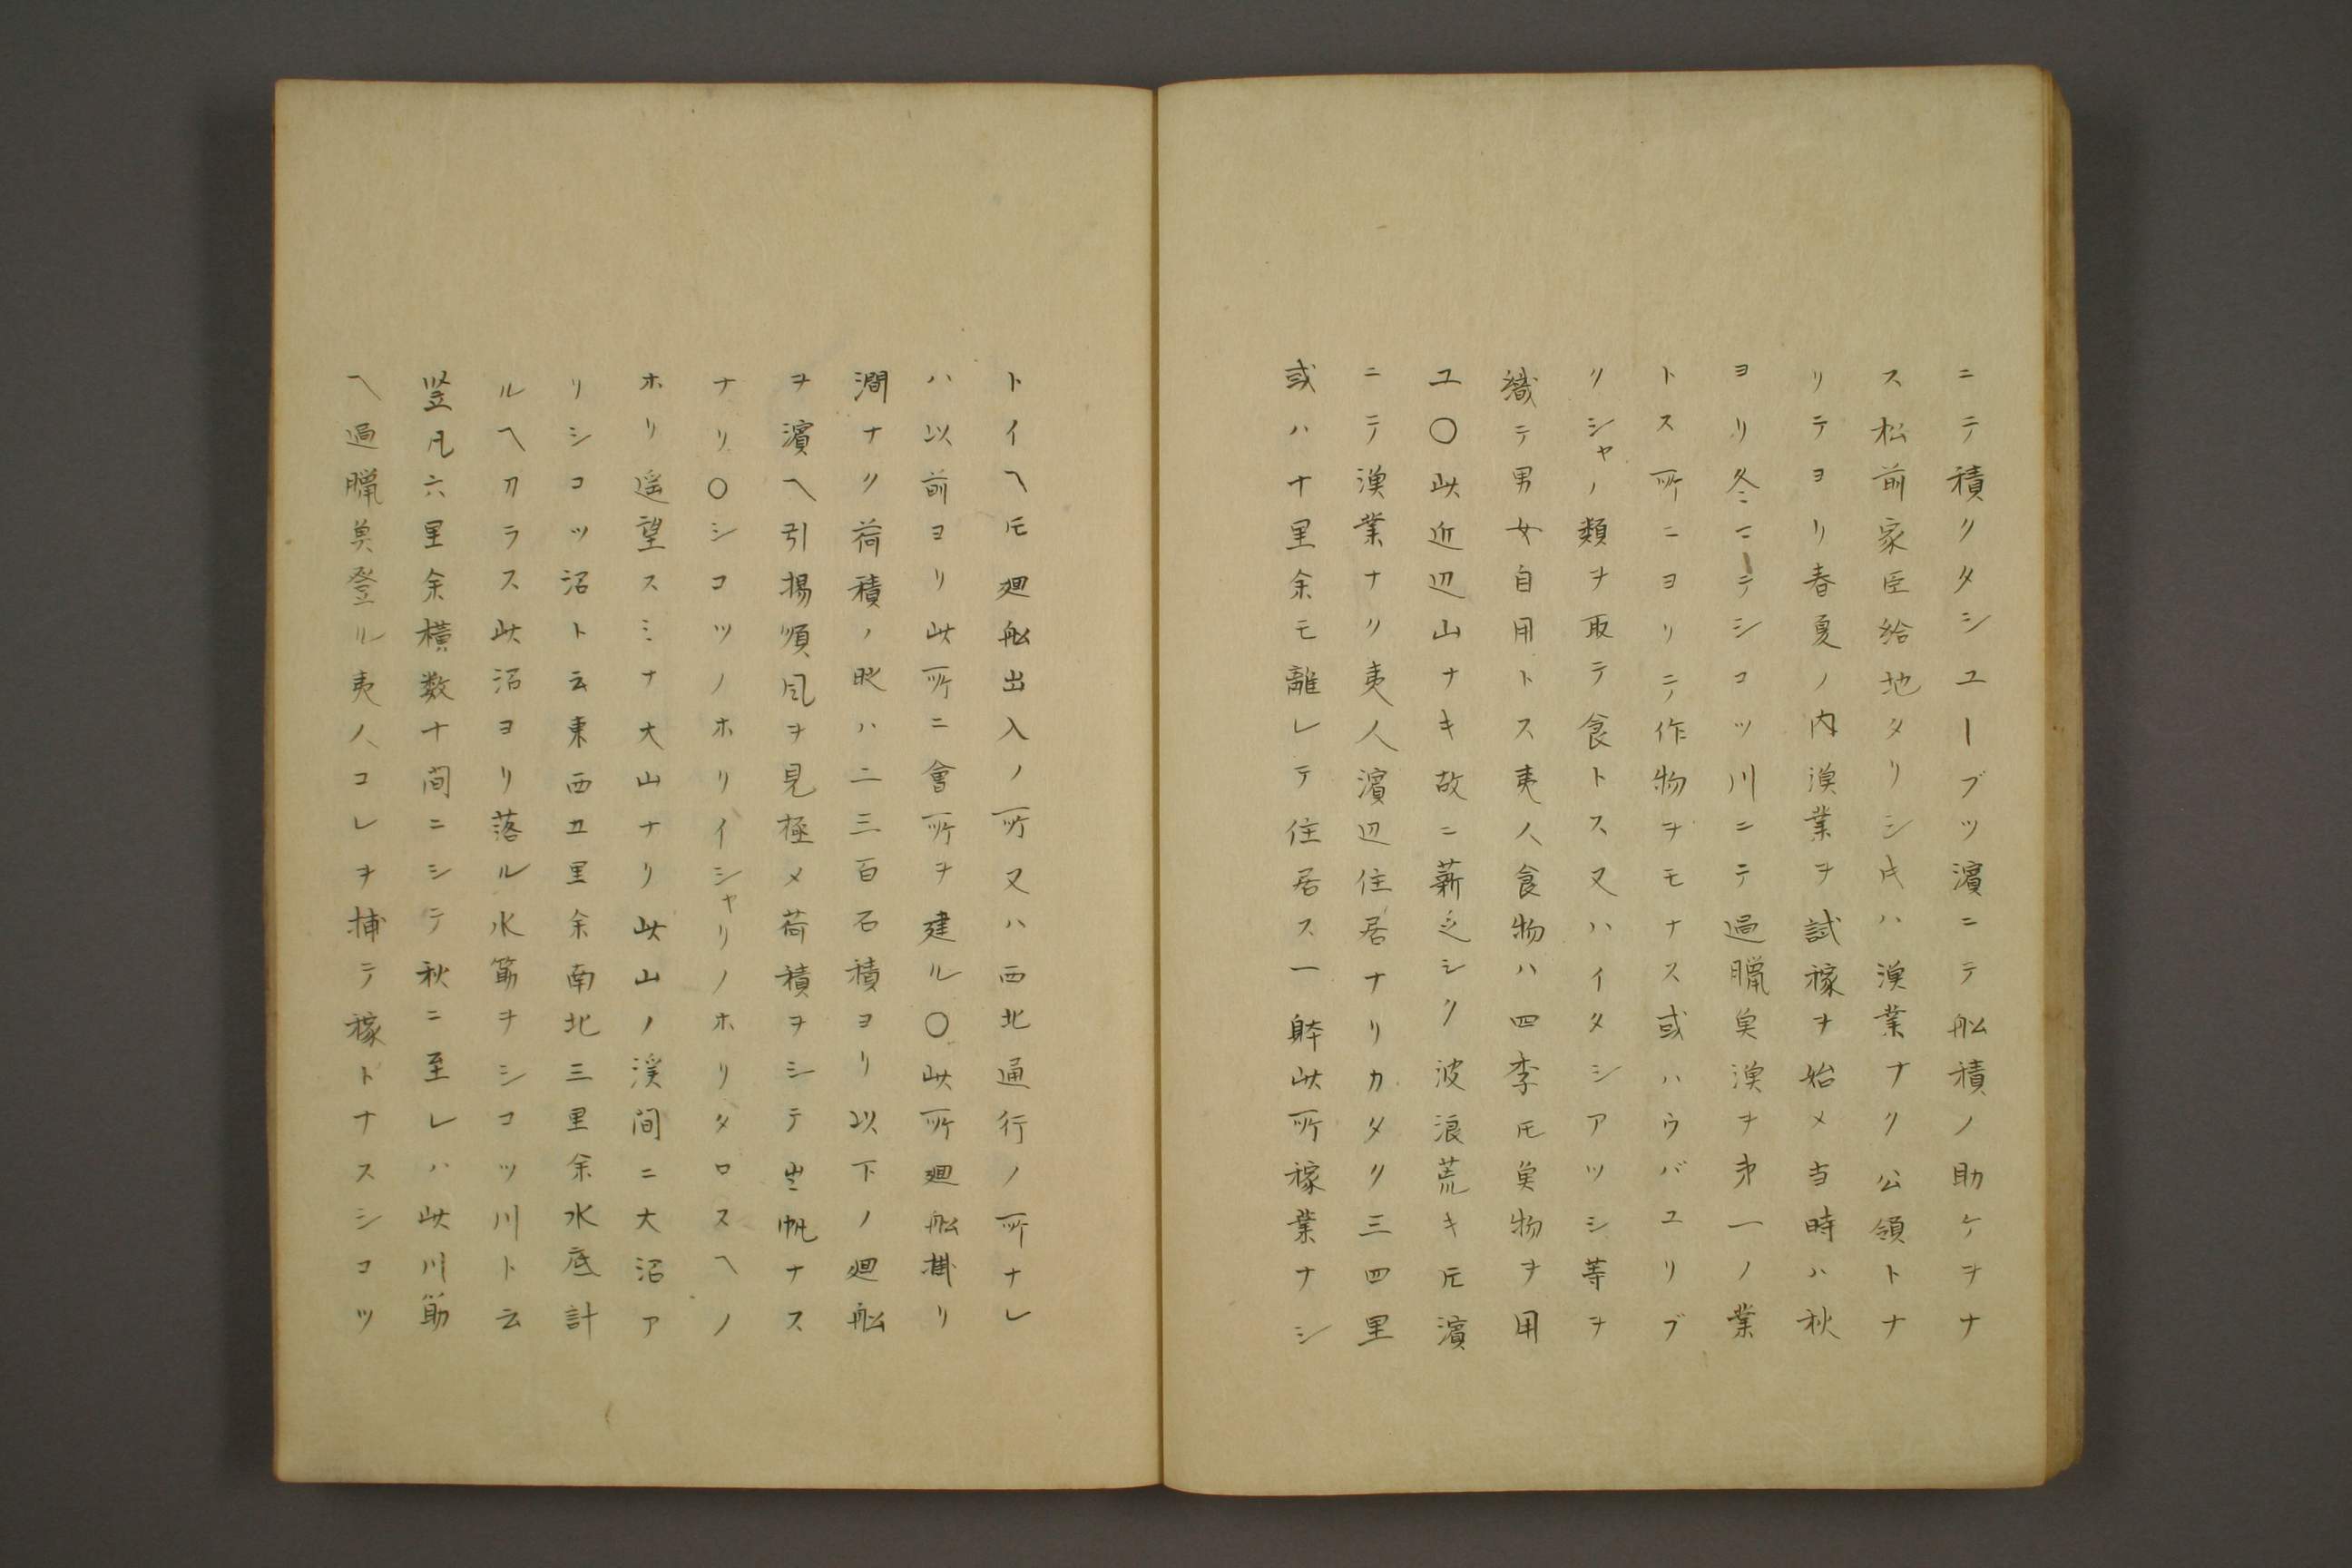 ニテ積クタシユーブツ濱ニテ船積ノ助ケヲナ
ス松前家臣給地タリシ𪜈ハ漁業ナク公領トナ
リテヨリ春夏ノ内漁業ヲ試稼ヲ始メ当時ハ秋
ヨリ冬ニテシコツ川ニテ過臘魚漁ヲ第一ノ業
トス所ニヨリテ作物ヲモナス或ハウバユリブ
クシャノ類ヲ取テ食トス又ハイタシアツシ等ヲ
織テ男女自用トス夷人食物ハ四季𪜈魚物ヲ用
ユ〇此近辺山ナキ故ニ薪乏シク波浪荒キ𪜈濱
ニテ漁業ナク夷人濱辺住居ナリカタク三四里
或ハ十里余モ離レテ住居ス一躰此所稼業ナシ
トイヘ𪜈廻船出入ノ所又ハ西北通行ノ所ナレ
ハ以前ヨリ此所ニ會所ヲ建ル〇此所廻船掛リ
澗ナク荷積ノ時ハ二三百石積ヨリ以下ノ廻船
ヲ濱ヘ引揚順風ヲ見極メ荷積ヲシテ出帆ナス
ナリ〇シコツノホリイシャリノホリタロスヘノ
ホリ遥望スミナ大山ナリ此山ノ渓間ニ大沼ア
リシコツ沼ト云東西五里余南北三里余水底計
ルヘカラス此沼ヨリ落ル水筋ヲシコツ川ト云
竪凡六里余横数十間ニシテ秋ニ至レハ此川筋
ヘ過臘魚登ル夷人コレヲ捕テ稼トナスシコツ